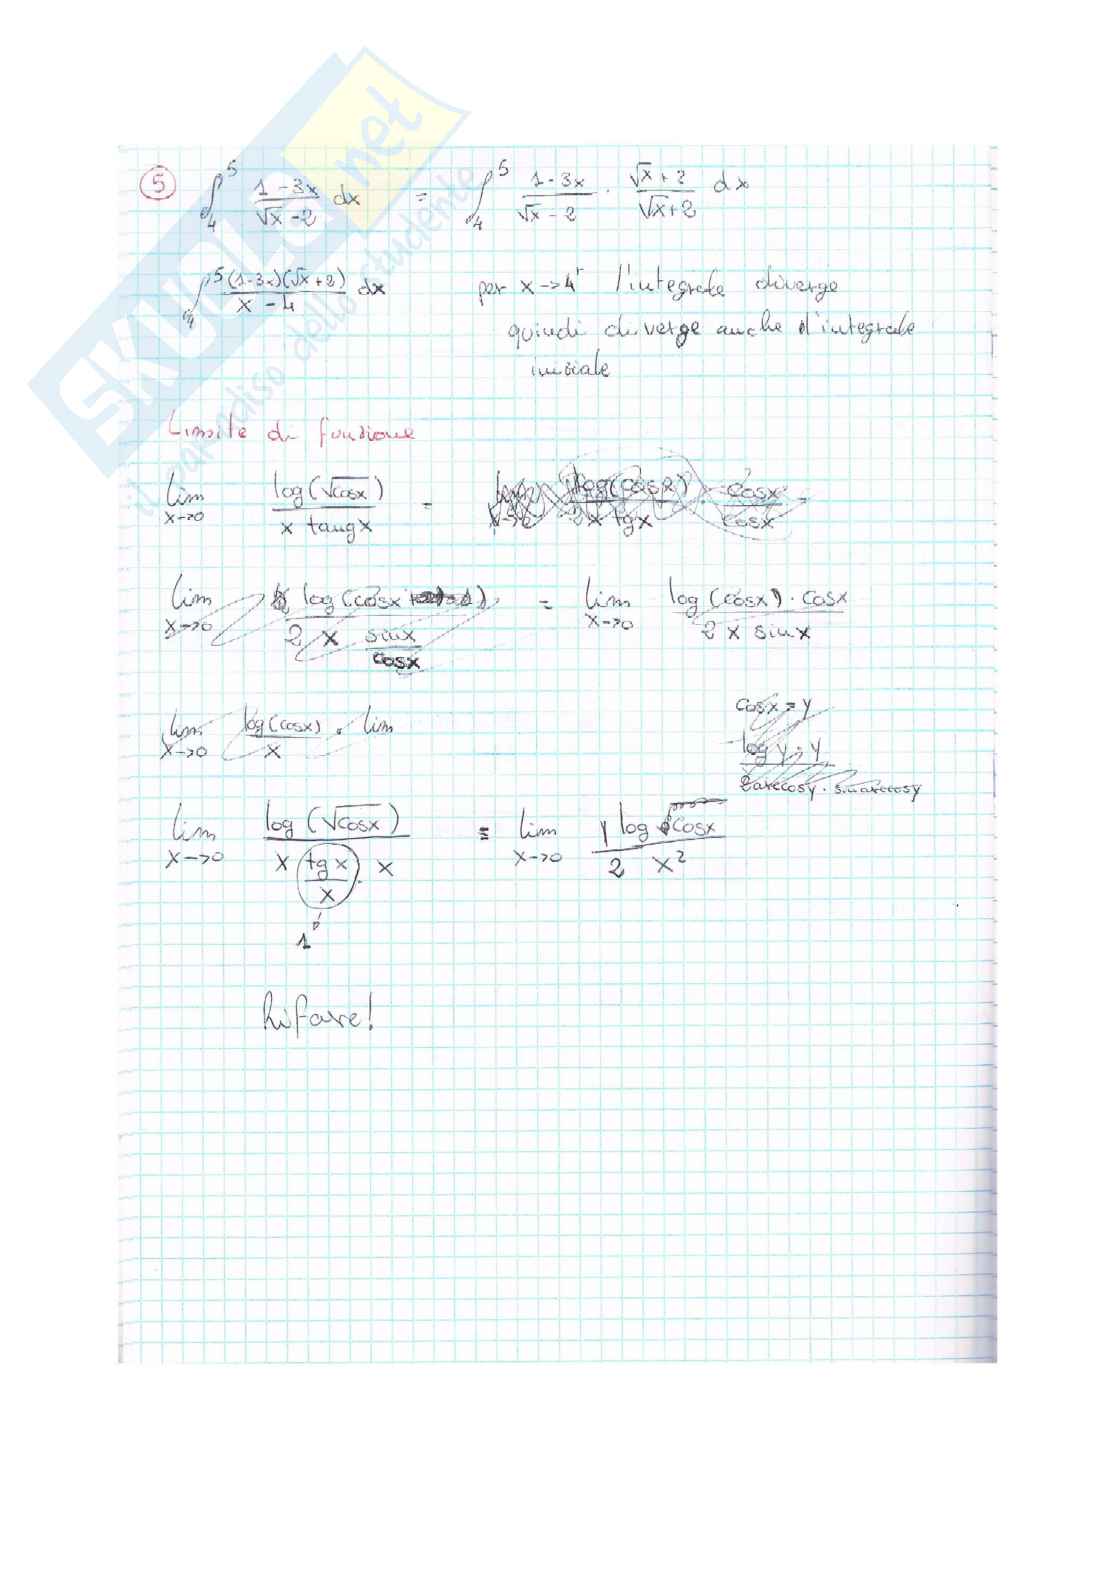 SKUOLA.net
il paradiso dello studente
5 ∫₄⁵ (1-3x)/(√x-2) dx = ∫₄⁵ (1-3x)/(√x-2) · (√x+2)/(√x+2) dx
∫₄⁵ (1-3x)(√x+2)/(x-4) dx per x→4⁺ l'integrale diverge
quindi diverge anche l'integrale
iniziale
Limite di funzione
lim x→0 log(√cosx)/(x tangx) = log(cosx)/(2x tgx) · cosx/cosx =
lim x→0 log(cosx)/(2 x sinx/cosx) = lim x→0 log(cosx) · cosx/(2 x sinx)
cosx = y
lim x→0 log(cosx)/x · lim
log y · y/(2arccosy · sinarccosy)
lim x→0 log(√cosx)/(x (tgx/x) · x) = lim x→0 log cosx/(2 x²)
1
Rifare!